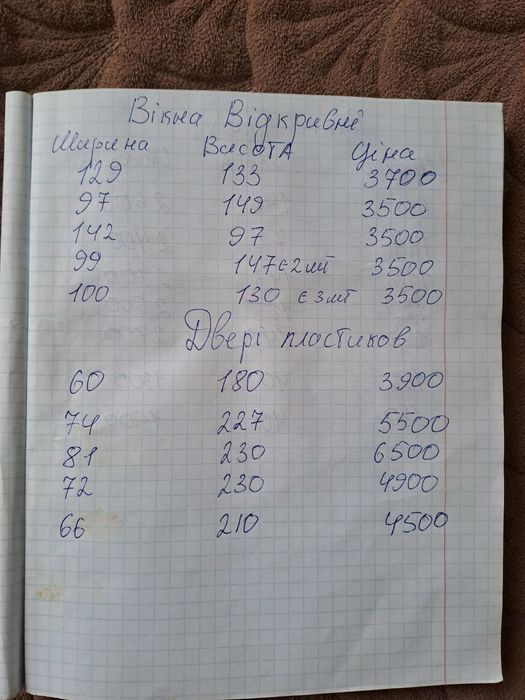 Вікна Відкривні
Ширина Висота Ціна
129 133 3700
97 149 3500
142 97 3500
99 147 є 2 шт 3500
100 130 є 3 шт 3500
Двері пластиков
60 180 3900
74 227 5500
81 230 6500
72 230 4900
66 210 4500